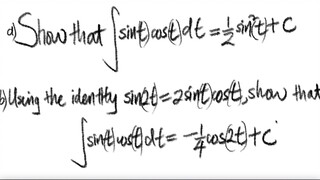 a) Show that ∫sin(t)cos(t)dt = 1/2 sin²(t) + C
b) Using the identity sin2t = 2sin(t)cos(t), show that
∫sin(t)cos(t)dt = -1/4 cos(2t) + C